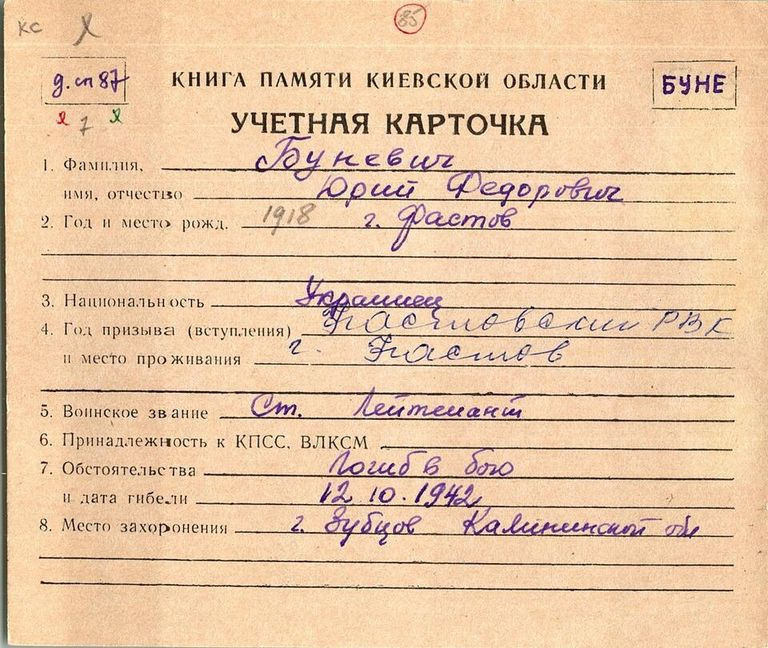 КС
85
д.сп 87
КНИГА ПАМЯТИ КИЕВСКОЙ ОБЛАСТИ
БУНЕ
7
УЧЕТНАЯ КАРТОЧКА
1. Фамилия, Буневич
имя, отчество Юрий Федорович
2. Год и место рожд. 1918 г. Фастов
3. Национальность Украинец
4. Год призыва (вступления) Фастовский РВК
и место проживания г. Фастов
5. Воинское звание Ст. Лейтенант
6. Принадлежность к КПСС, ВЛКСМ
7. Обстоятельства Погиб в бою
и дата гибели 12.10.1942
8. Место захоронения г. Зубцов Калининской обл